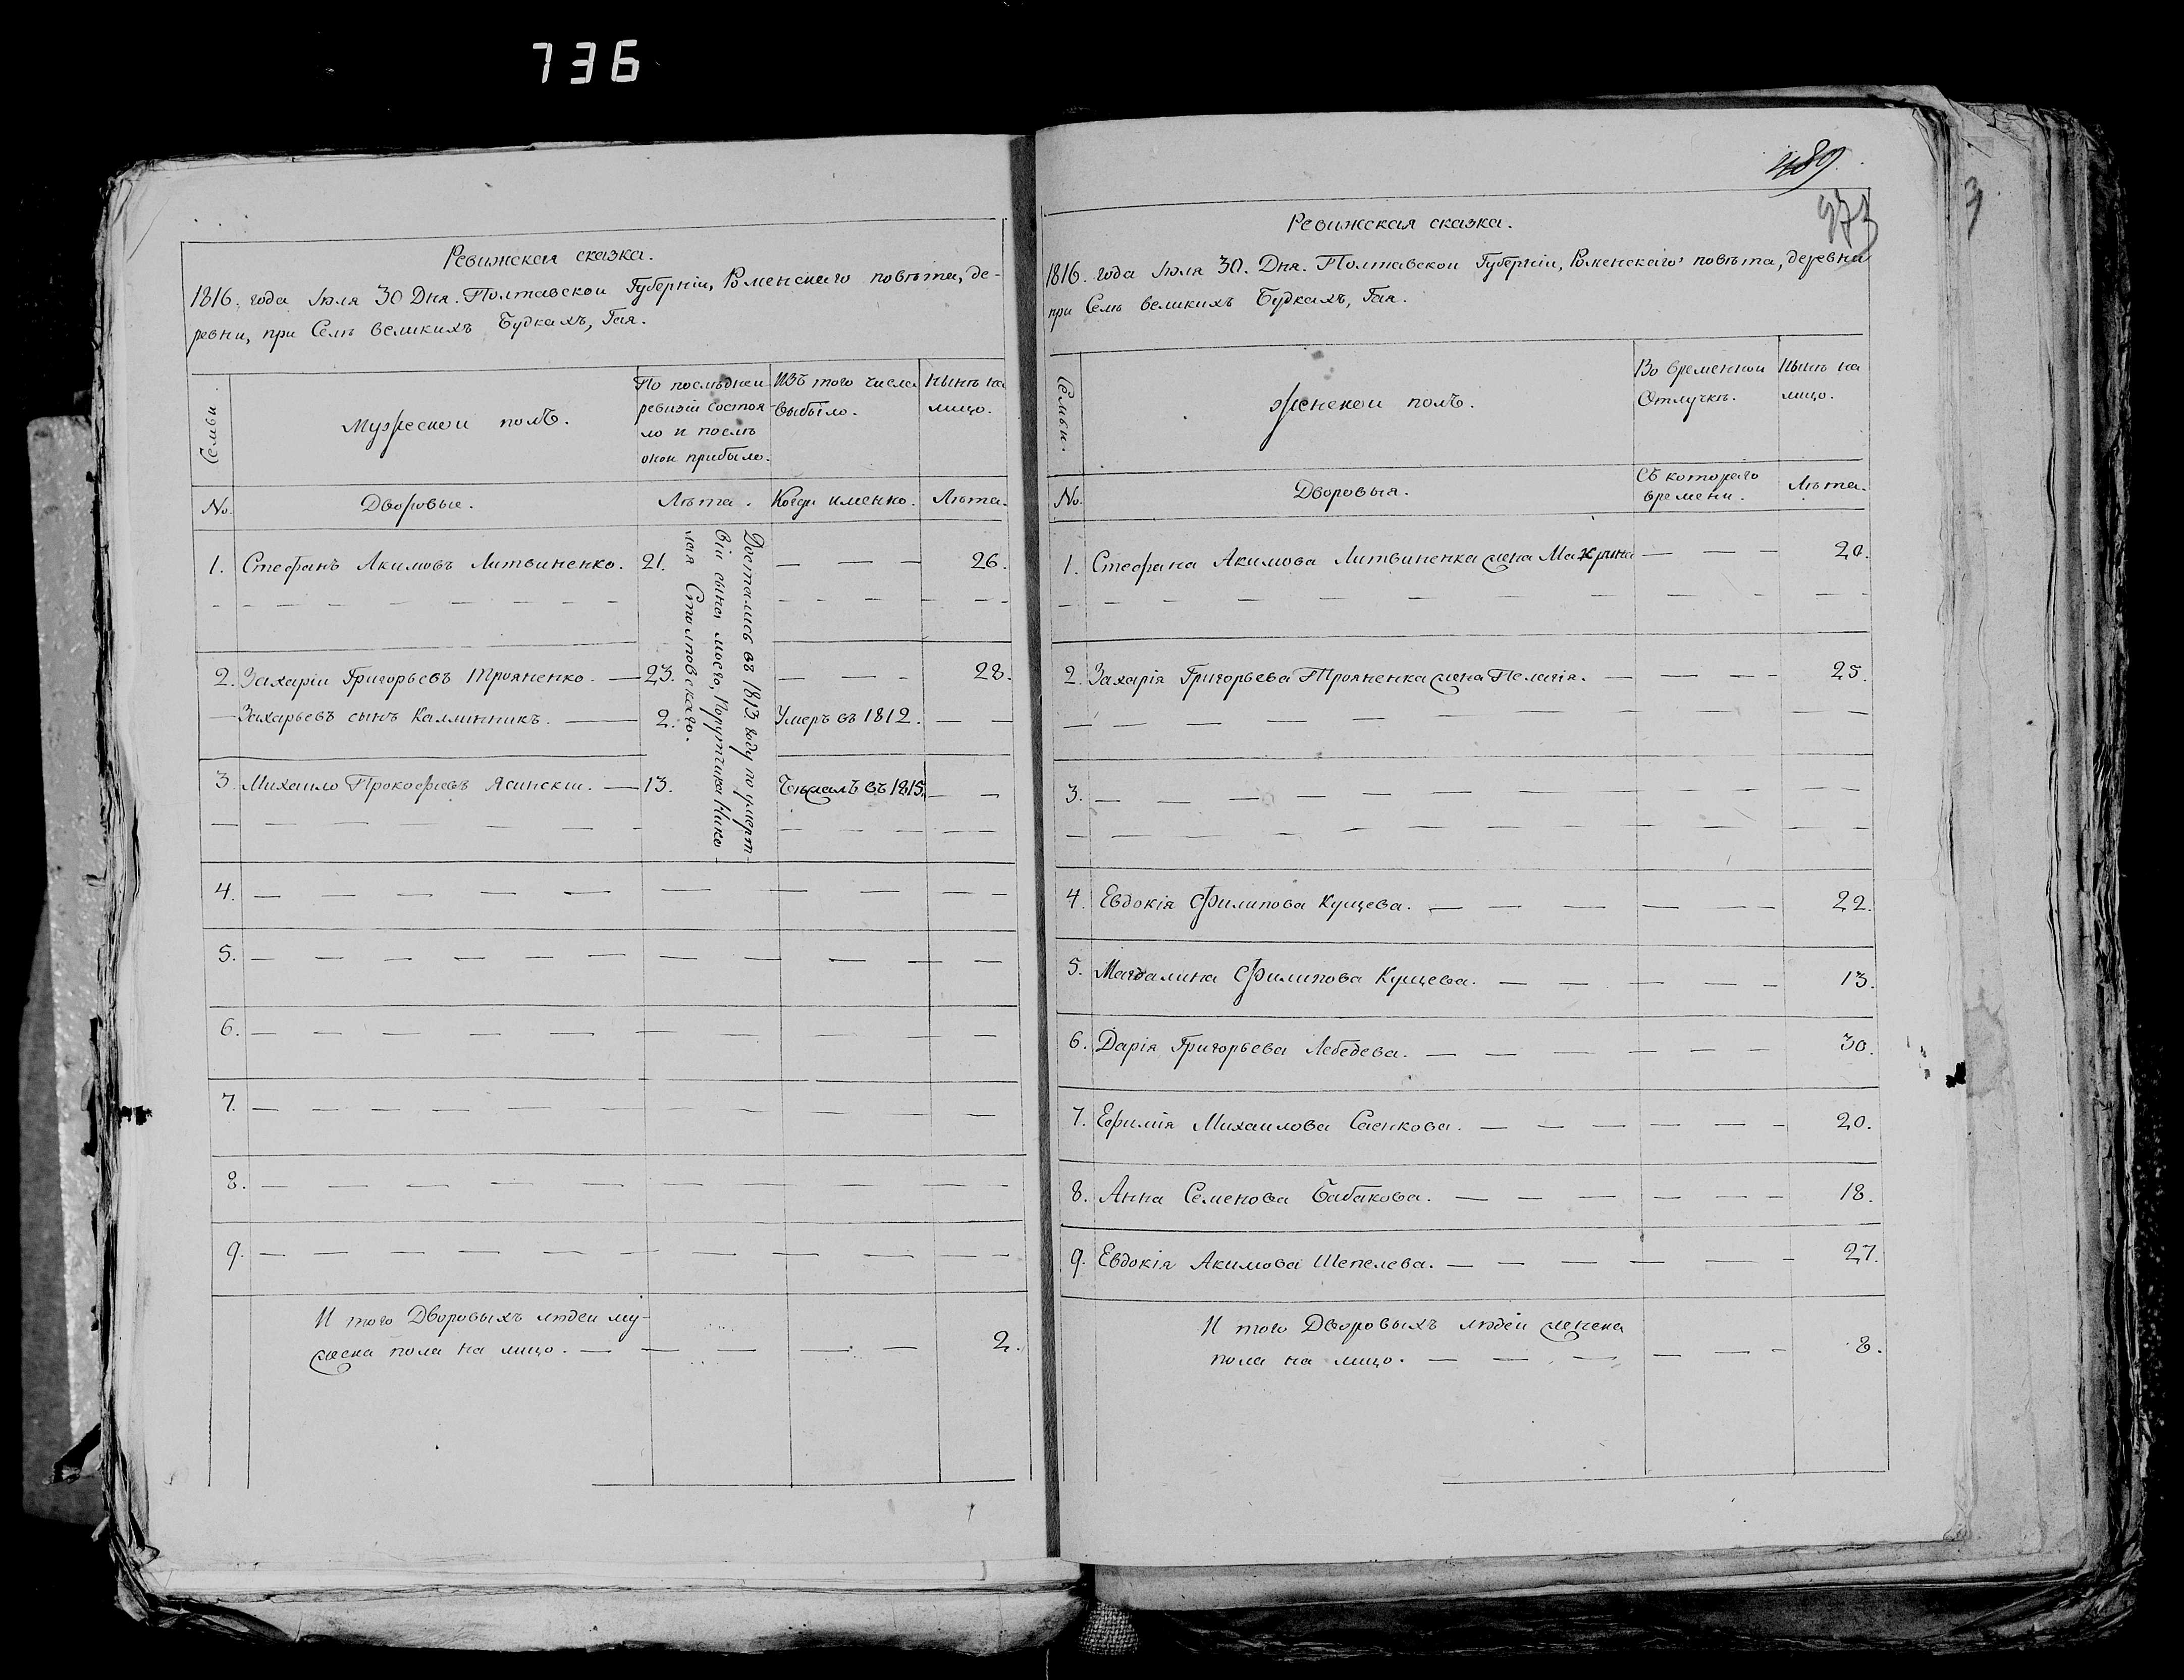 736
Ревижская сказка.
1816. года Іюля 30 Дня. Полтавской Губерніи, Роменскаго повѣта, де-
ревни, при Селѣ великихъ Будкахъ, Гая.
Семьи.
Мужеской полъ.
По послѣдней
ревизіи состоя-
ло и послѣ
оной прибыло.
Изъ того числа
выбыло.
Нынѣ на
лицо.
No. Дворовые. Лѣта. Когда именно. Лѣта.
1. Стефанъ Акимовъ Литвиненко. 21. — — — 26.
2. Захаріи Григорьевъ Трояненко. — 23. — — - 28.
— Захарьевъ сынъ Каллинникъ. — 2. Умеръ въ 1812. — —
3. Михаило Прокофиевъ Ясински. — 13. Бѣжалъ въ 1815. — —
Достались въ 1813 году по умерт-
віи сына моего, Порутчика Нико-
лая Столповскаго.
4. — — — — — — — — — —
5. — — — — — — — — — —
6. — — — — — — — — —
7. — — — — — — — — — —
8. — — — — — — — — — —
9. — — — — — — — — — —
И того Дворовыхъ людей му-
жеска пола на лицо. — — — — — 2.
489.
973
Ревижская сказка.
1816. года Іюля 30. Дня. Полтавской Губерніи, Роменскаго повѣта, деревни
при Селѣ великихъ Будкахъ, Гая.
Семьи.
Женской полъ.
Во временной
Отлучкѣ.
Нынѣ на
лицо.
No. Дворовыя. Съ котораго
времени. Лѣта.
1. Стефана Акимова Литвиненка жена Макрина — — — 20.
2. Захарія Григорьева Трояненка жена Пелагія. — — — - 25.
3. — — — — — — — — — —
4. Евдокія Филипова Купцева. — — — — — - 22.
5. Магдалина Филипова Купцева. — — — — - 13.
6. Дарія Григорьева Лебедева. — — — — — - 30.
7. Ефимія Михаилова Саенкова. — — — — — - 20.
8. Анна Семенова Бабакова. — — — — — - 18.
9. Евдокія Акимова Шепелева. — — — — — - 27.
И того Дворовыхъ людей женска
пола на лицо. — — — — — - 8.